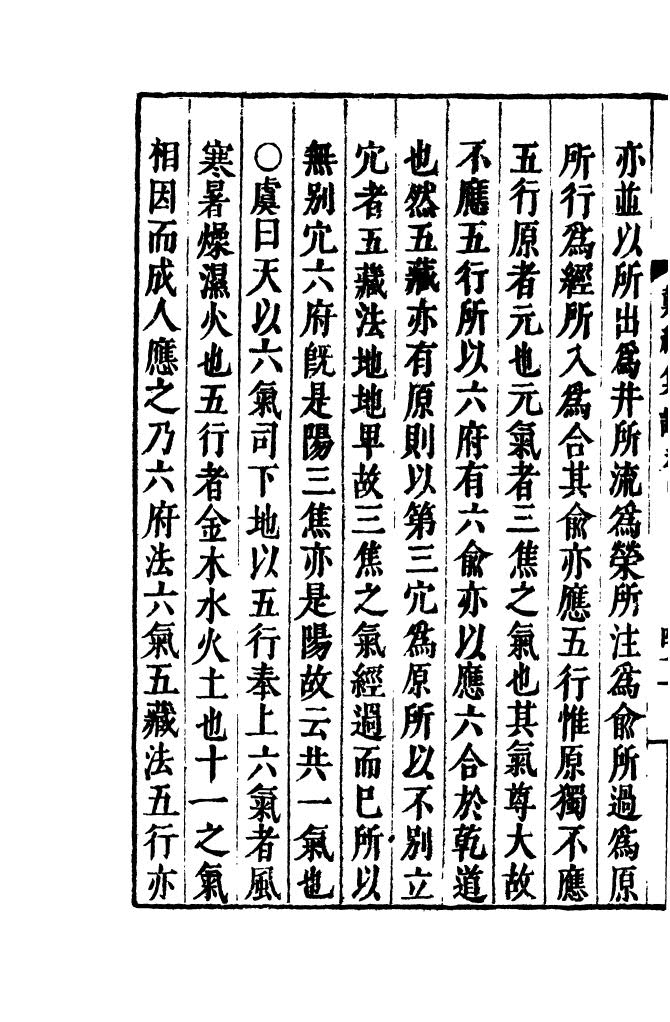 亦並以所出爲井所流爲榮所注爲俞所過爲原
所行爲經所入爲合其俞亦應五行惟原獨不應
五行原者元也元氣者三焦之氣也其氣尊大故
不應五行所以六府有六俞亦以應六合於乾道
也然五藏亦有原則以第三穴爲原所以不别立
穴者五藏法地地卑故三焦之氣經過而巳所以
無别穴六府旣是陽三焦亦是陽故云共一氣也
○虞曰天以六氣司下地以五行奉上六氣者風
寒暑燥濕火也五行者金木水火土也十一之氣
相因而成人應之乃六府法六氣五藏法五行亦